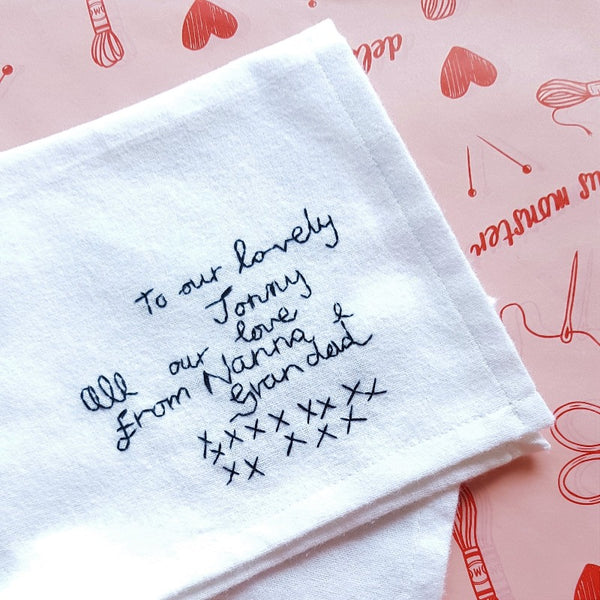 To our lovely
Jonny
All our love
From Nanna &
Grandad
x x x x x x x x
x x x x x
deli
us monster